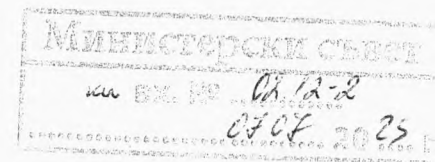 Министерски съвет
вх. № 02.12-2
07.07 2025 г.